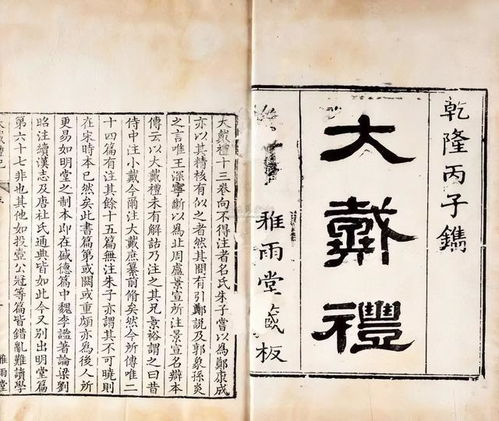 乾隆丙子鐫
大戴禮
雅雨堂藏板
大戴禮十三卷向不得注者名氏朱子嘗以為鄭康成
亦以其精核有似之者然其間有引鄭說及郭象孫炎
之言唯王深寧斷以為北周盧景宣所注景宣名辯本
傳云以大戴禮未有解詁乃注之其兄景裕謂之曰昔
侍中注小戴今爾注大戴庶纂前脩矣然今所傳唯二
十四篇有注其餘十五篇無注朱子亦謂其不可曉則
在宋時本已然矣此書篇第或闕或重頗亦為後人所
更易如明堂之制本即在盛德篇中魏李謐著論梁劉
昭注續漢志及唐杜氏通典皆如此今又別出明堂篇
第六十七非也其他如投壺公冠等篇皆錯亂難讀學
雅雨堂